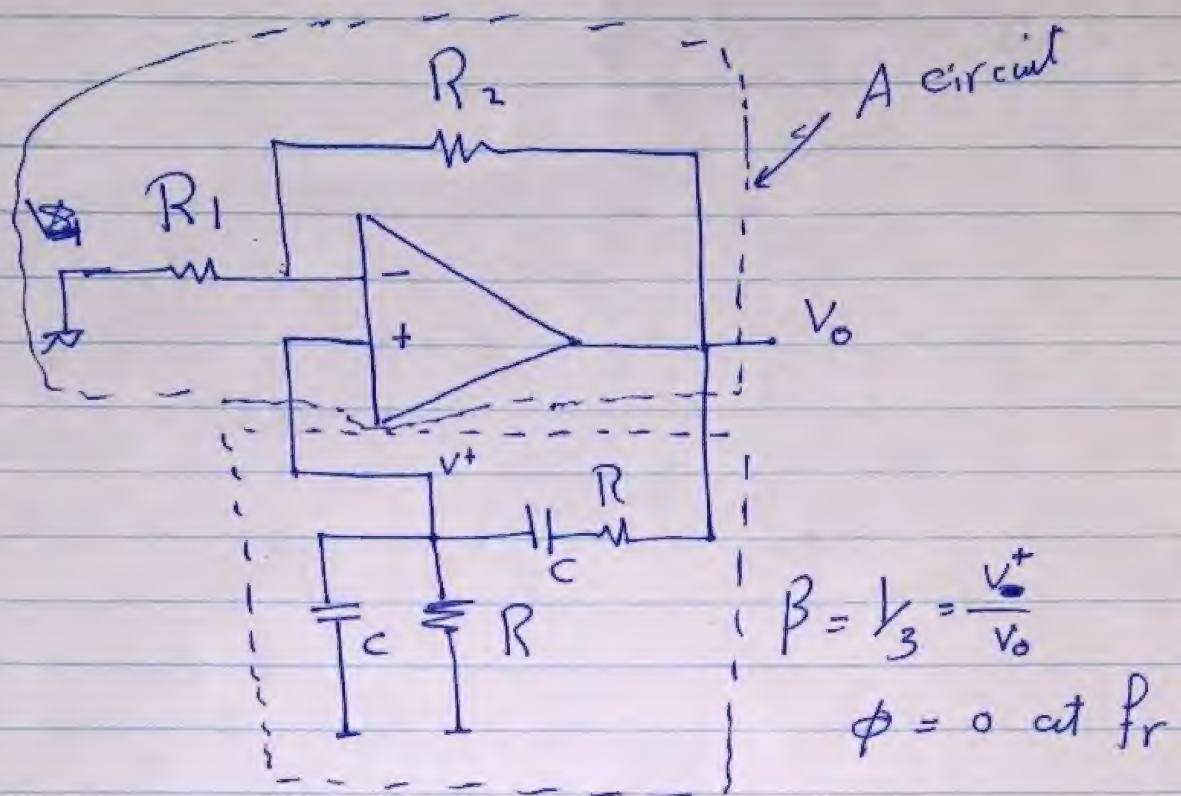 R2
A circuit
R1
-
+
Vo
V+
R
C
C
R
β = 1/3 = V+/Vo
φ = 0 at fr